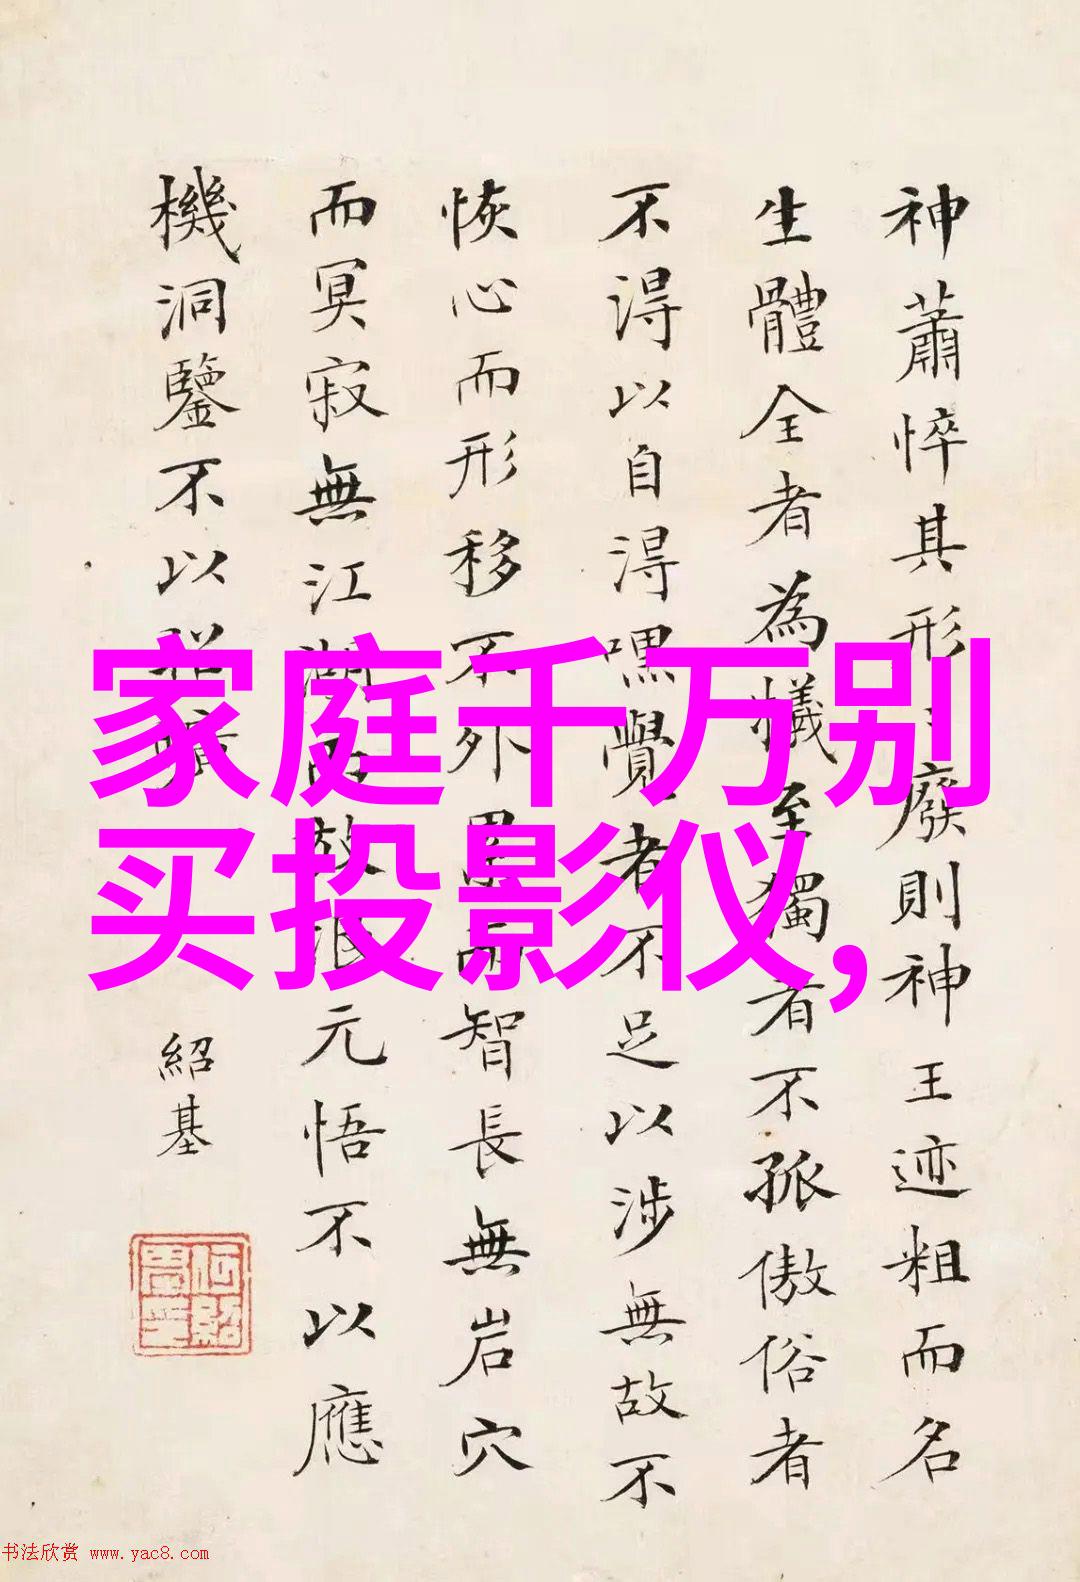 神蕭悴其形廢則神王迹粗而名
生體全者為犠至獨者不孤傲俗者
不淂以自淂嘿覺者不足以涉無故不
恢心而形移不外累而智長無岩穴
而冥寂無江湖而放浪元悟不以應
機洞鑒不以
紹基
家庭千万别
买投影仪,
书法欣赏 www.yac8.com